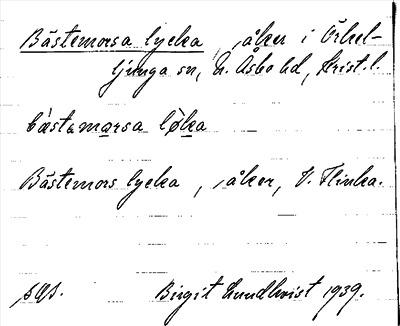 Bästemorsa lycka, åker i Örkel-
ljunga sn, N. Åsbo hd, Krist. l.
bästemarsa løka
Bästemors lycka, åker, V. Flinka.
Birgit Lundkvist 1939.